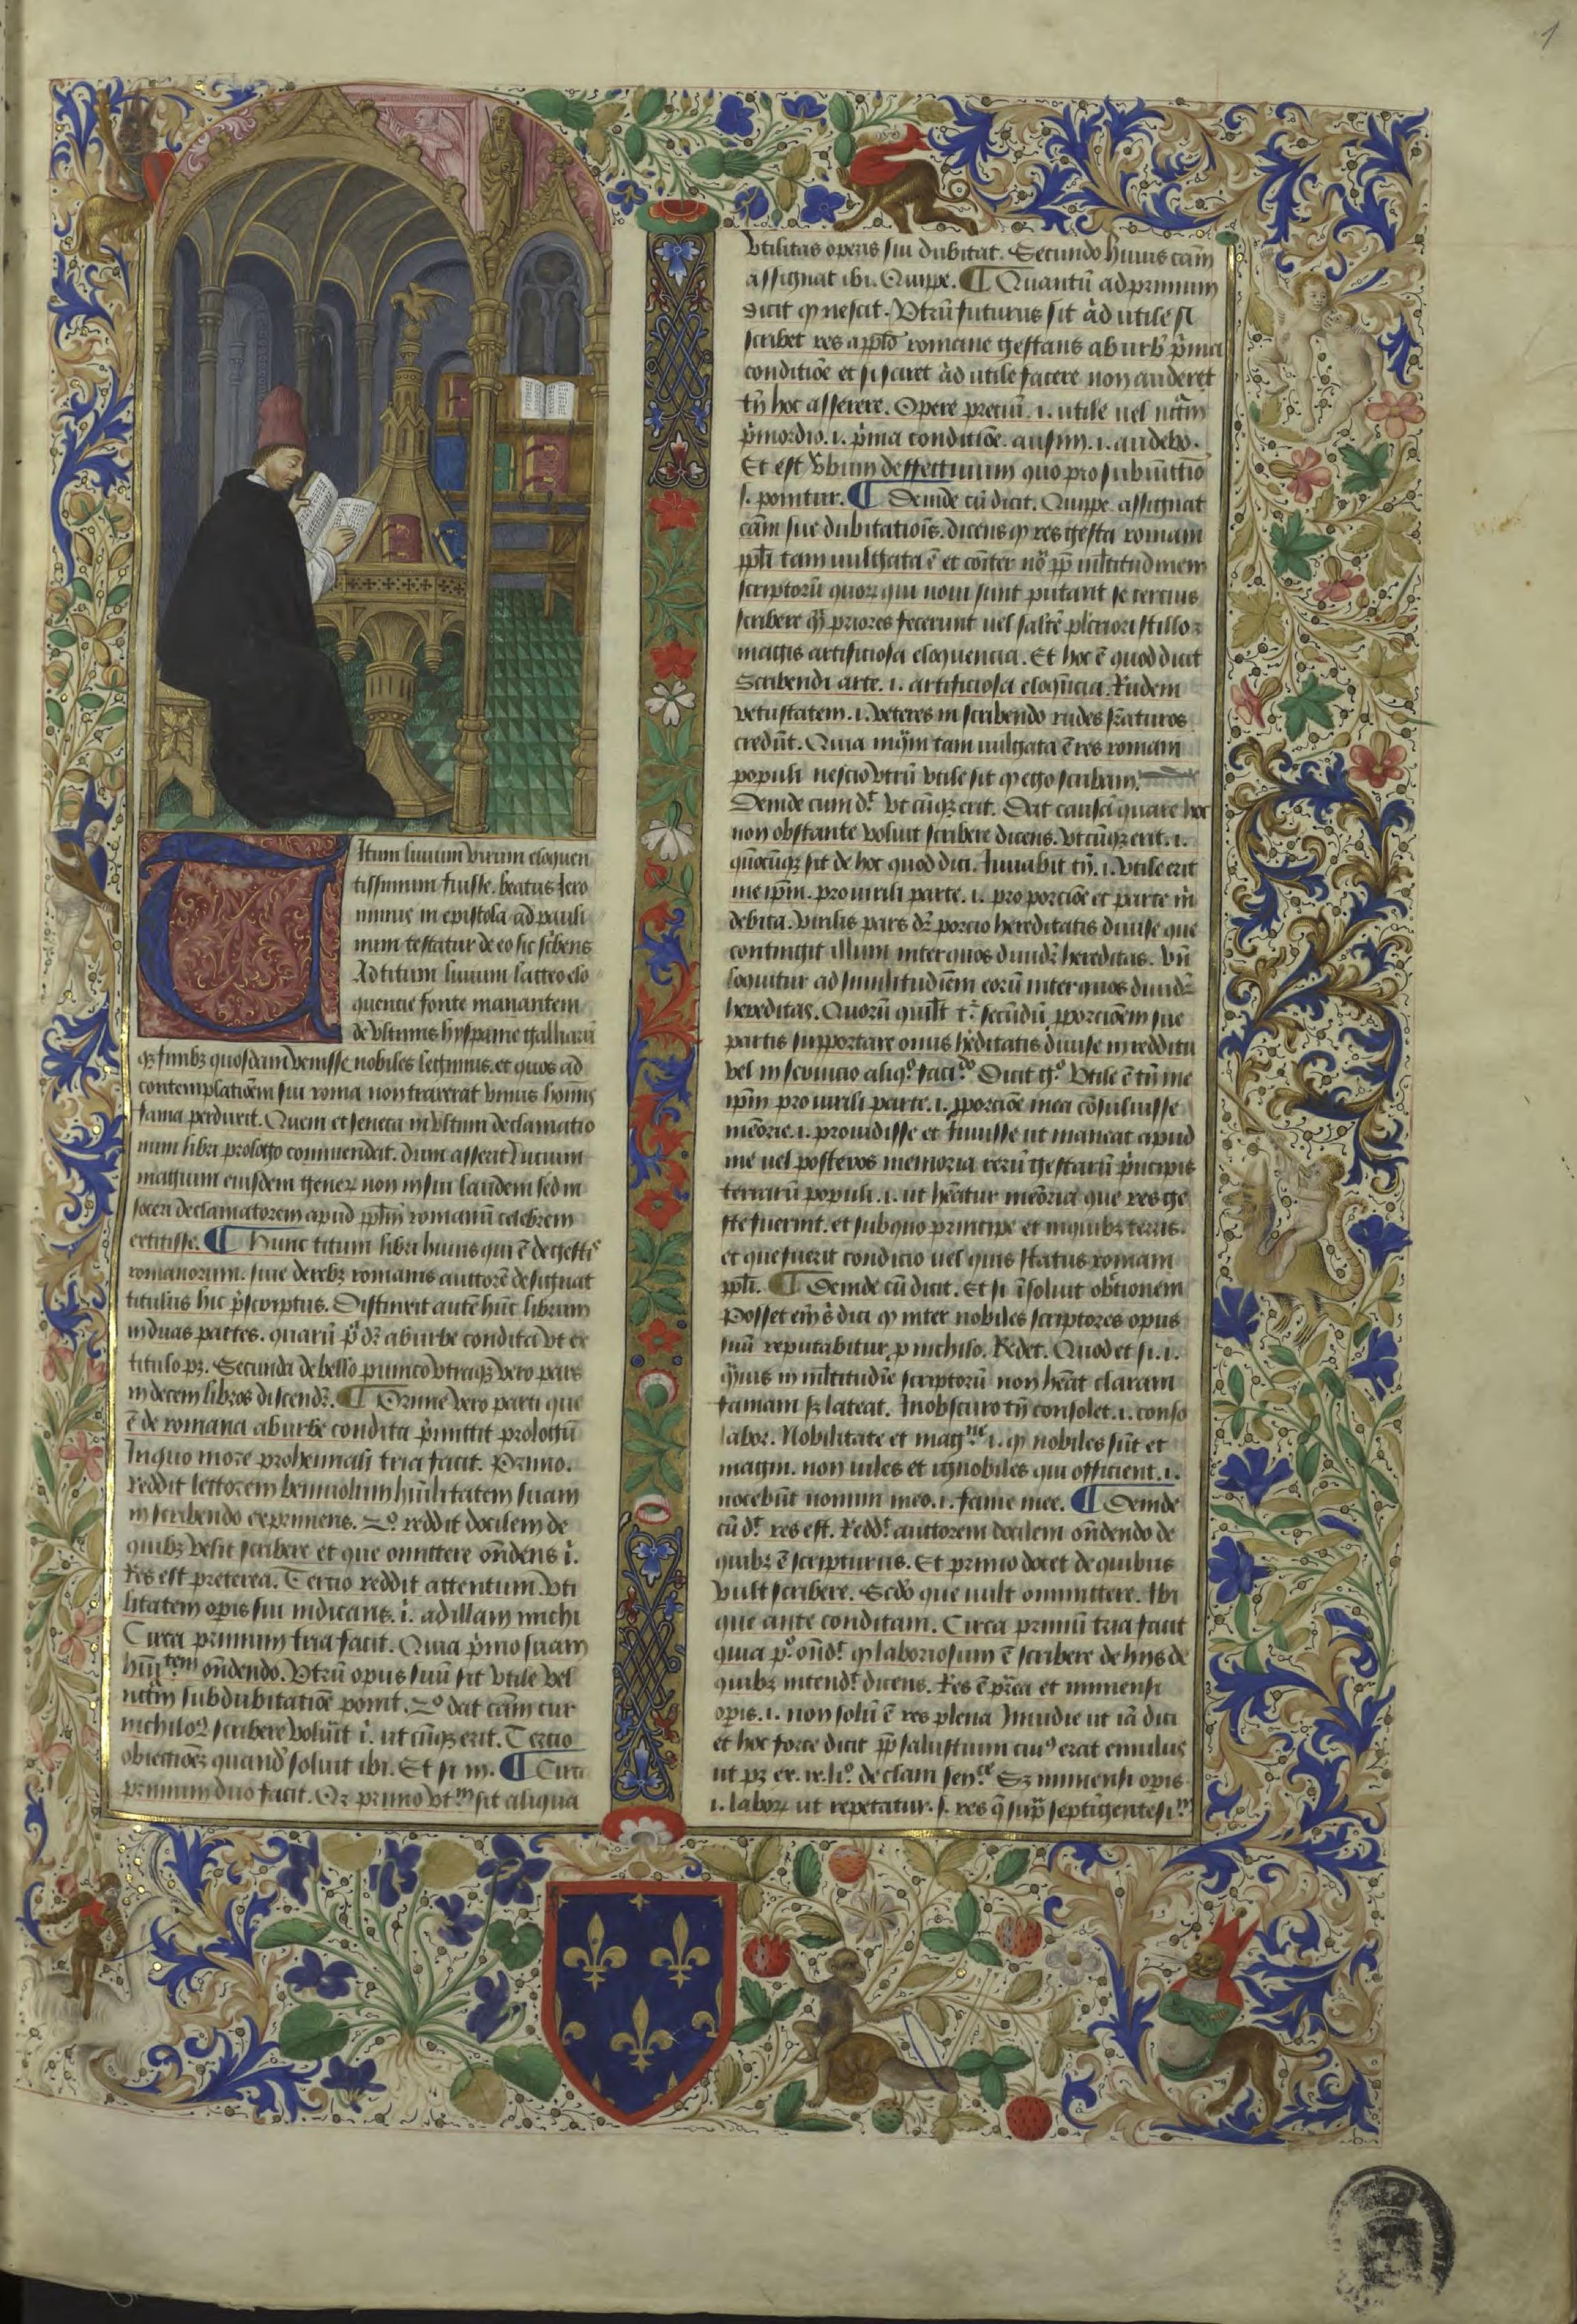 1
Titum liuium virum eloquen
tissimum fuisse. beatus Jero
nimus in epistola ad pauli
num testatur de eo sic scͥbens
Ad titum liuium lacteo elo
quentie fonte manantem
de vltimis hyspanie galliarū
qꝫ finibꝫ quosdam venisse nobiles legimus. et quos ad
contemplatiōem sui roma non traxerat vnius hoīnis
fama perduxit. Quem et seneca in vltimū declamatio
num libri prologo commendat. dum asserit Lucium
magium eiusdem generꝝ non in sui laudem sed in
soceri declamatorem apud ppl̄m romanū celebrem
extitisse. ¶ Hunc titum libri huius qui ē de gestis
romanorum. siue de rebꝫ romanis auttorē designat
titulus hic p̄scriptus. Distinxit autē hūc librum
in duas partes. quarū pͣ dꝛ ab urbe condita vt ex
titulo pꝫ. Secunda de bello punico vtraqꝫ vero pars
in decem libros discendꝛ. ¶ Prime vero parti que
ē de romana ab urbe condita p̄mittit prologū
In quo more prohemiali tria facit. Primo.
reddit lettorem beniuolum hūilitatem suam
in scribendo exprimens. 2º reddit docilem de
quibꝫ velit scribere et que omittere ōndens ī.
Res est preterea. Tercio reddit attentum. vti
litatem opis sui indicans. ī. ad illam michi
Circa primum tria facit. Quia p̄mo suam
hūītem ōndendo. Vtrū opus suū sit vtile vel
nc̄m subdubitatiōe ponit. 2º dat cām cur
nichilo2 scribere voluīt ī. ut cūqꝫ erit. Tercio
obiectiōeꝫ quandā soluit ibi. Et si in. ¶ Circa
primum duo facit. Qꝛ primo vtꝝ sit aliqua
vtilitas operis sui dubitat. Secundo huius cām
assignat ibi. Quippe. ¶ Quantū ad primum
dicit qɔ nescit. Vtrū futurus sit ad utile si
scribet res a pplō romane gestans ab urbͤ pͥma
conditiōe et si sciret ad utile facere non auderet
tn̄ hoc asserere. Opere preciū. i. utile uel nc̄m
pͥmordio. i. pͥma conditiōe. ausim. i. audebo.
Et est v̄bum deffectiuum quo pro subiuctīo
s. ponitur. ¶ Deinde cū dicit. Quippe. assignat
cām sue dubitatiōis. dicens qɔ res gesta romani
ppl̄i tam uulgata ē et cōiter nō ꝓpͭ ml̄titudinem
scriptorū quorꝝ qui noui sunt putant se tercius
scribere qͣ priores fecerunt uel saltē pleniori stillo ꝛ
magis artificiosa eloquencia. Et hoc ē quod dicit
Scribendi arte. i. artificiosa eloqūcia. Rudem
vetustatem. i. veteres in scribendo rudes sꝑaturos
credūt. Quia inqͥm tam uulgata ē res romani
populi nescio vtrū vtile sit qɔ ego scribam.
Deinde cum dͭ. Vt cūqꝫ erit. Dat causā quare hoc
non obstante voluit scribere dicens. vt cūqꝫ erit. i.
qūocūqꝫ sit de hoc quod dici. Juuabit tn̄. i. vtile erit
me ipm̄. pro uirili parte. i. pro porciōe et parte m̄
debita. virilis pars dꝛ porcio hereditatis diuise que
contingit illum inter quos diuidꝛ hereditas. vn̄
loquitur ad similitudiem eorū inter quos diuidꝛ
hereditas. Quorū quilꝫ tꝛ secūdū ꝓporciōem sue
partis supportare onus hēditatis diuise in redditu
vel in seruicio aliqº faciᵈº. Dicit gº. Vtile ē tn̄ me
ipm̄ pro uirili parte. i. ꝓporciōe mea cōsuluisse
memorie. i. prouidisse et Juuisse ut maneat apud
me uel posteros memoria rerū gestarū pͥncipis
terrarū populi. i. ut hēatur memoria que res ge
ste fuerint. et sub quo principe et in quibꝫ terris.
et que fuerit condicio uel quis status romani
ppl̄i. ¶ Deinde cū dicit. Et si ī soluit obtīonem
Posset em̄ sͥ dici qɔ inter nobiles scriptores opus
suū reputabitur ꝓ nichilo. Rͦdet. Quod et si. i.
qͣuis in ml̄titudīe scriptorū non hēat claram
famam sꝫ lateat. In obscuro tn̄ consolet. i. conso
labor. Nobilitate et magᵐᵉ. i. qɔ nobiles sūt et
magni. non uiles et ignobiles qui officient. i.
nocebūt nomini meo. i. fame mee. ¶ Deinde
cū dͭ. res est. Reddͭ. auttorem docilem ōndendo de
quibꝫ ē scripturus. Et primo docet de quibus
vult scribere. Sedō que uult ommittere. Ibi
que ante conditam. Circa primū tria facit
quia pº. ōndͭ. qɔ laboriosum ē scribere de hijs de
quibꝫ intendͭ. dicens. Res ē pͭrea et immensi
opis. i. non solū ē res plena Jnuidie ut iā dixi
et hoc forte dicit ꝓpͭ salustium cui9 erat emulus
ut pꝫ ex. ix. liº. declam senᶜᵉ. Sꝫ immensi opis.
i. laborꝝ ut repetatur. s. res q̄ supͣ septīgentesiᵐ